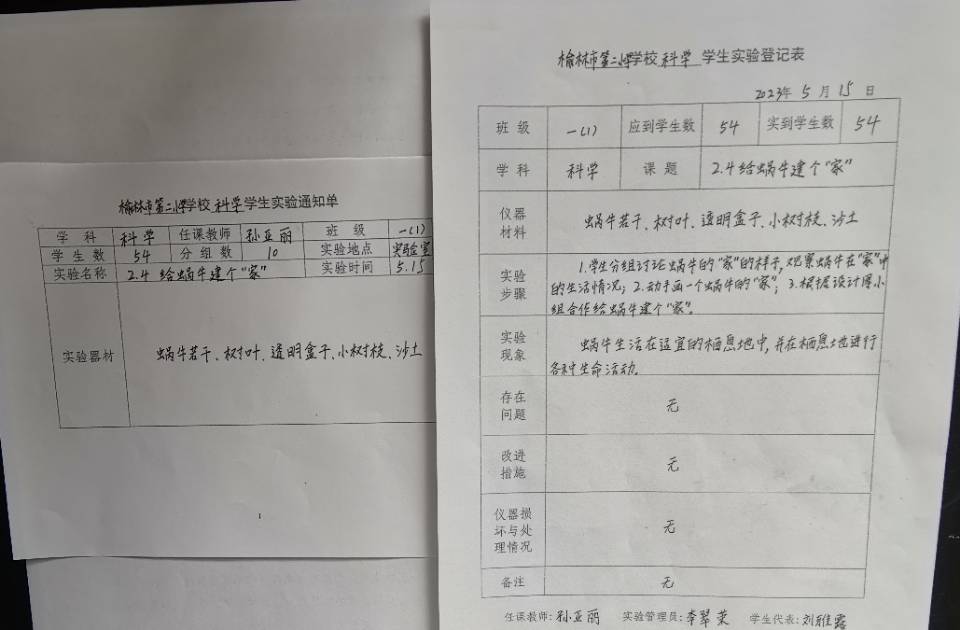 榆林市第二小学校科学学生实验通知单
学 科 科学 任课教师 孙亚丽 班 级 一(1)
学 生 数 54 分 组 数 10 实验地点 实验室
实验名称 2.4 给蜗牛建个"家" 实验时间 5.15
实验器材 蜗牛若干、树叶、透明盒子、小树枝、沙土
1
榆林市第二小学校科学 学生实验登记表
2023年 5 月 15 日
班 级 一(1) 应到学生数 54 实到学生数 54
学 科 科学 课 题 2.4给蜗牛建个"家"
仪器
材料
蜗牛若干、树叶、透明盒子、小树枝、沙土
实验
步骤
1.学生分组讨论蜗牛的"家"的样子,观察蜗牛在"家"中
的生活情况；2.动手画一个蜗牛的"家"；3.根据设计图小
组合作给蜗牛建个"家"。
实验
现象
蜗牛生活在适宜的栖息地中,并在栖息地进行
各种生命活动。
存在
问题
无
改进
措施
无
仪器损
坏与处
理情况
无
备注 无
任课教师:孙亚丽 实验管理员:李翠荣 学生代表:刘雅露